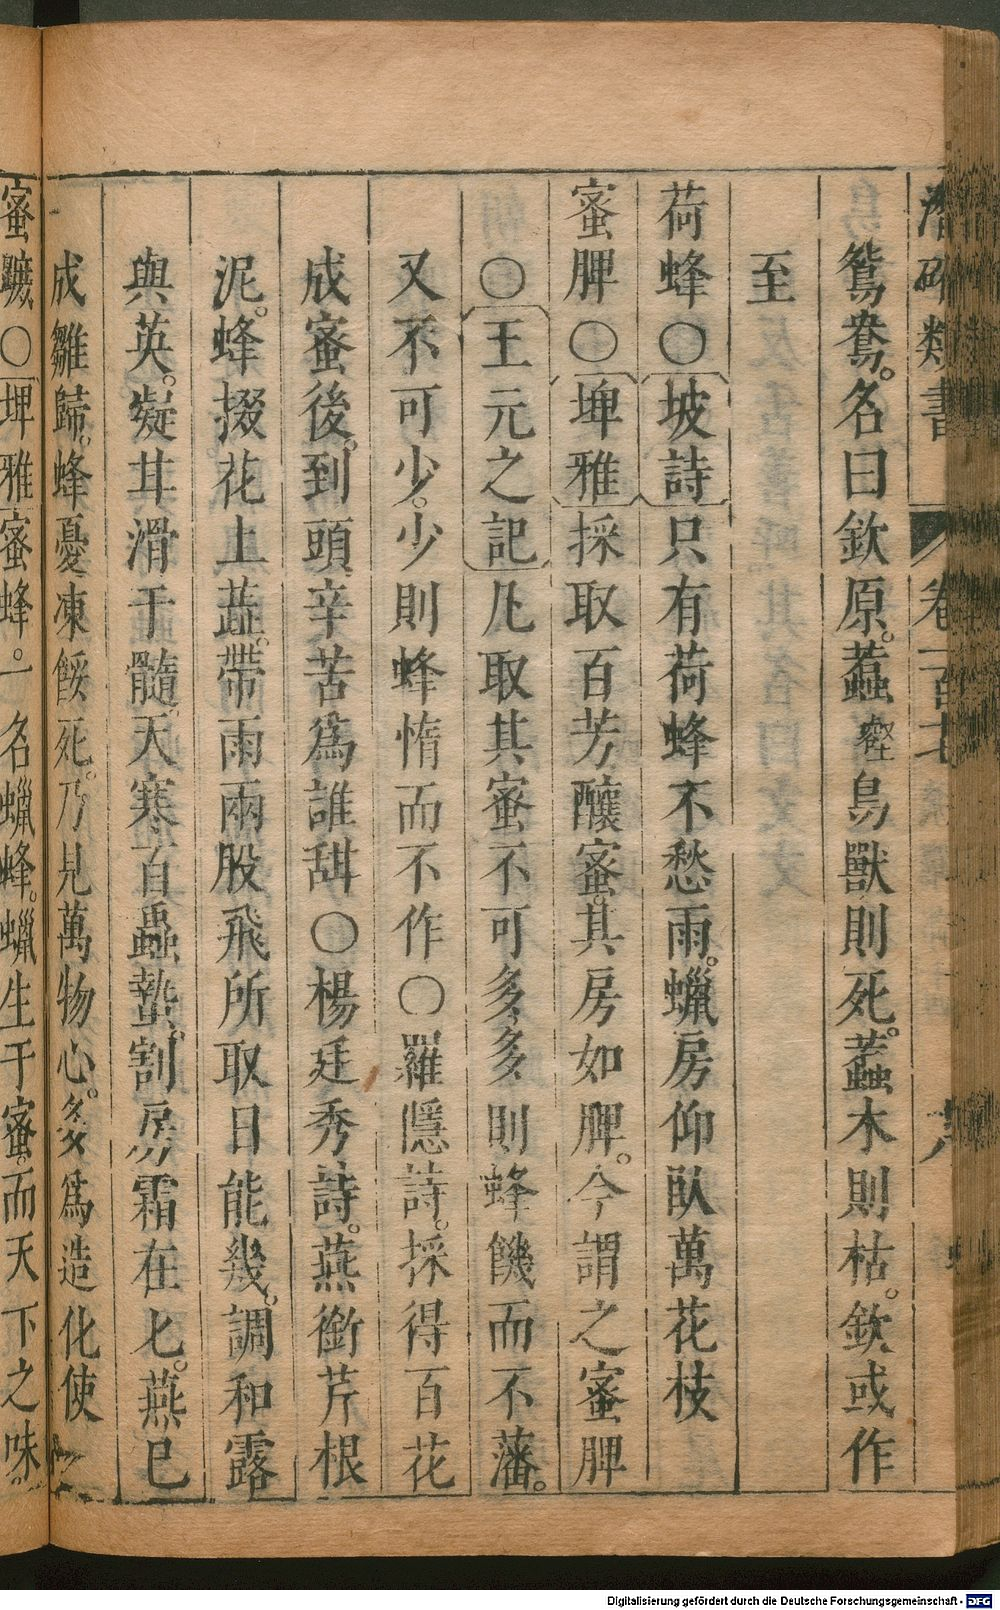 潛確類書 卷一百
鴛鴦。名曰欽原。蠚蟲鳥獸則死。蠚木則枯。欽或作
至
荷蜂〇坡詩只有荷蜂不愁雨。蠟房仰臥萬花枝
蜜脾〇埤雅採取百芳釀蜜。其房如脾。今謂之蜜脾
〇王元之記凡取其蜜不可多。多則蜂饑而不藩。
又不可少。少則蜂惰而不作〇羅隱詩。採得百花
成蜜後。到頭辛苦爲誰甜〇楊廷秀詩。燕銜芹根
泥。蜂掇花上蕋。帶雨兩股飛所取日能幾。調和露
與英。凝甘滑于髓。天寒百蟲蟄。割房霜在匕。燕巳
成雛歸。蜂憂凍餒死。乃見萬物心。多爲造化使
蜜蠟〇埤雅蜜蜂。一名蠟蜂。蠟生于蜜。而天下之味
Digitalisierung gefördert durch die Deutsche Forschungsgemeinschaft - DFG